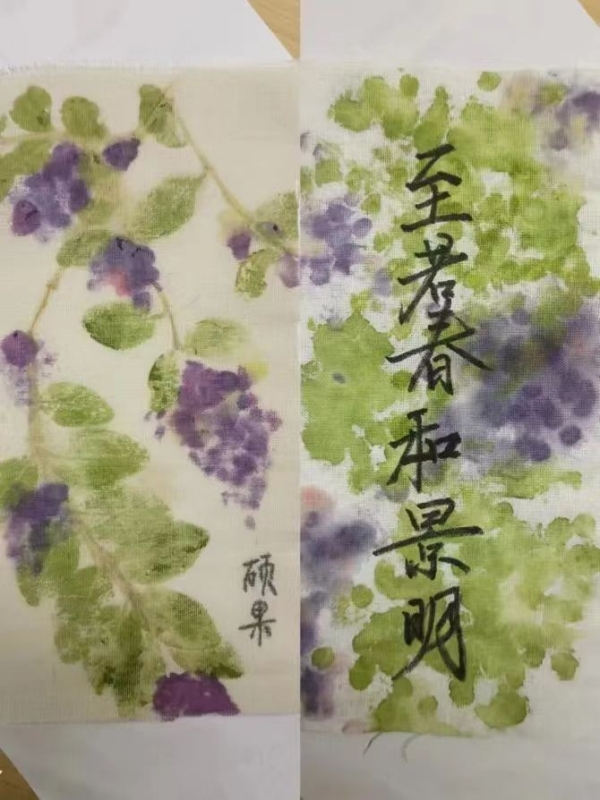 硕果
至若春和景明